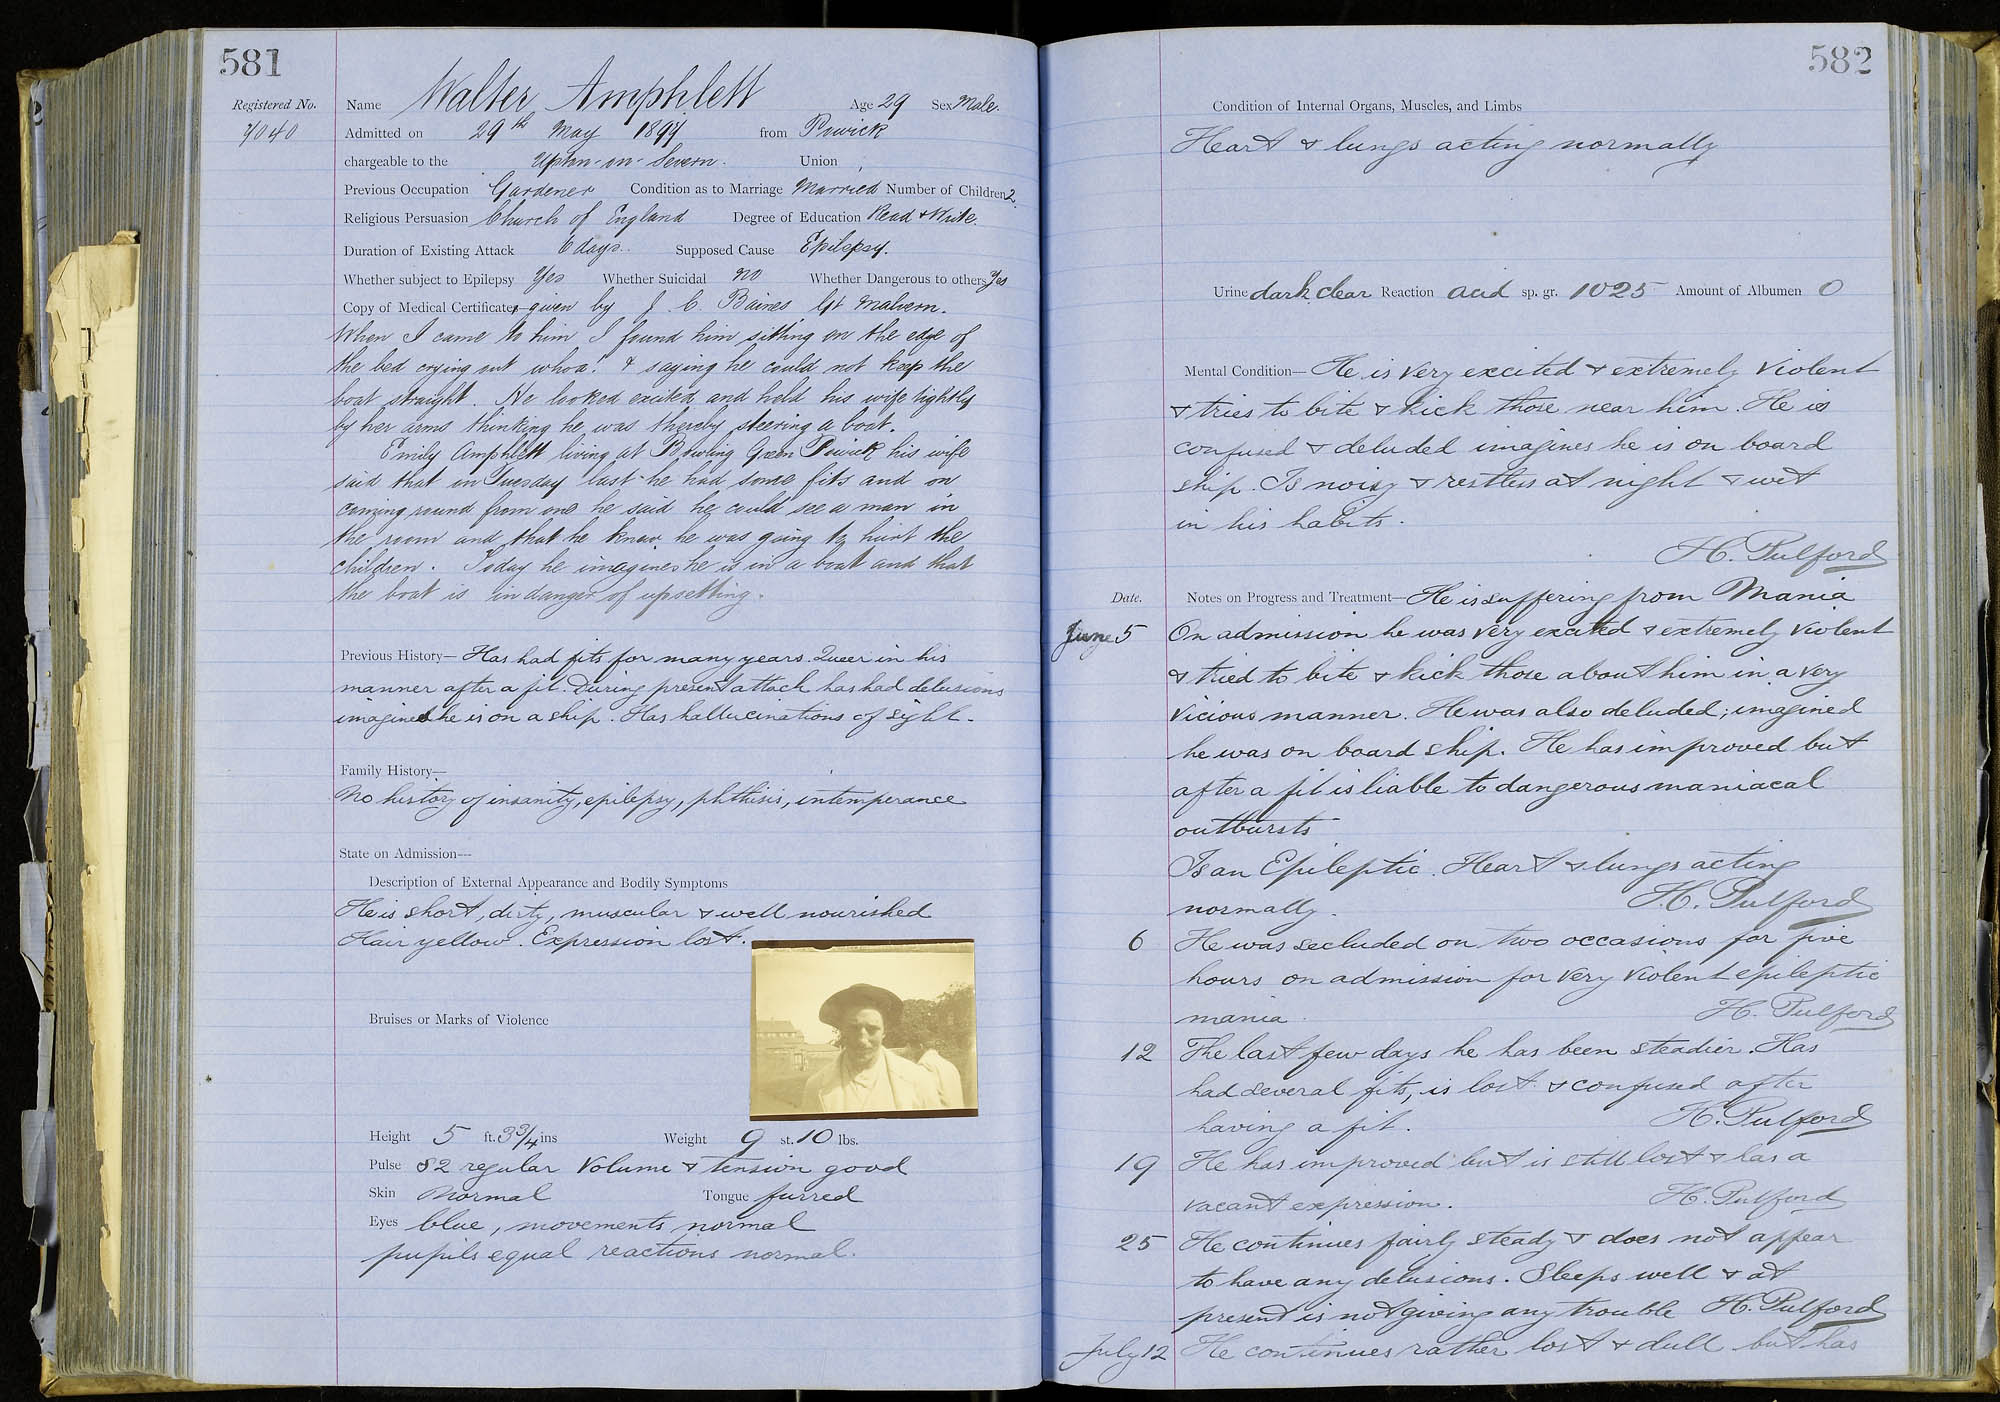 581
Registered No.
7040
Name Walter Amphlett Age 29 Sex Male.
Admitted on 29th May 1897 from Powick
chargeable to the Upton-on-Severn. Union
Previous Occupation Gardener Condition as to Marriage Married Number of Children 2.
Religious Persuasion Church of England Degree of Education Read & Write.
Duration of Existing Attack 6 days. Supposed Cause Epilepsy.
Whether subject to Epilepsy Yes Whether Suicidal No Whether Dangerous to others Yes
Copy of Medical Certificate, given by J. C. Baines Gt Malvern.
When I came to him I found him sitting on the edge of
the bed crying out whoa! & saying he could not keep the
boat straight. He looked excited and held his wife tightly
by her arms thinking he was thereby steering a boat.
Emily Amphlett living at Bowling Green Powick his wife
said that on Tuesday last he had some fits and on
coming round from one he said he could see a man in
the room and that he knew he was going to hurt the
children. Today he imagines he is in a boat and that
the boat is in danger of upsetting.
Previous History— Has had fits for many years. Queer in his
manner after a fit. During present attack has had delusions
imagined he is on a ship. Has hallucinations of sight.
Family History—
No history of insanity, epilepsy, phthisis, intemperance
State on Admission—
Description of External Appearance and Bodily Symptoms
He is short, dirty, muscular & well nourished
Hair yellow. Expression lost.
Bruises or Marks of Violence
Height 5 ft. 3 3/4 ins Weight 9 st. 10 lbs.
Pulse 82 regular Volume & tension good
Skin Normal Tongue furred
Eyes blue, movements normal
pupils equal reactions normal.
582
Condition of Internal Organs, Muscles, and Limbs
Heart & lungs acting normally
Urine dark clear Reaction acid sp. gr. 1025 Amount of Albumen 0
Mental Condition— He is very excited & extremely violent
& tries to bite & kick those near him. He is
confused & deluded imagines he is on board
ship. Is noisy & restless at night & wet
in his habits.
H. Pulford
Date. Notes on Progress and Treatment— He is suffering from Mania
June 5 On admission he was very excited & extremely violent
& tried to bite & kick those about him in a very
vicious manner. He was also deluded; imagined
he was on board ship. He has improved but
after a fit is liable to dangerous maniacal
outbursts
Is an Epileptic. Heart & lungs acting
normally. H. Pulford
6 He was secluded on two occasions for five
hours on admission for very violent epileptic
mania. H. Pulford
12 The last few days he has been steadier. Has
had several fits, is lost & confused after
having a fit. H. Pulford
19 He has improved but is still lost & has a
vacant expression. H. Pulford
25 He continues fairly steady & does not appear
to have any delusions. Sleeps well & at
present is not giving any trouble H. Pulford
July 12 He continues rather lost & dull but has